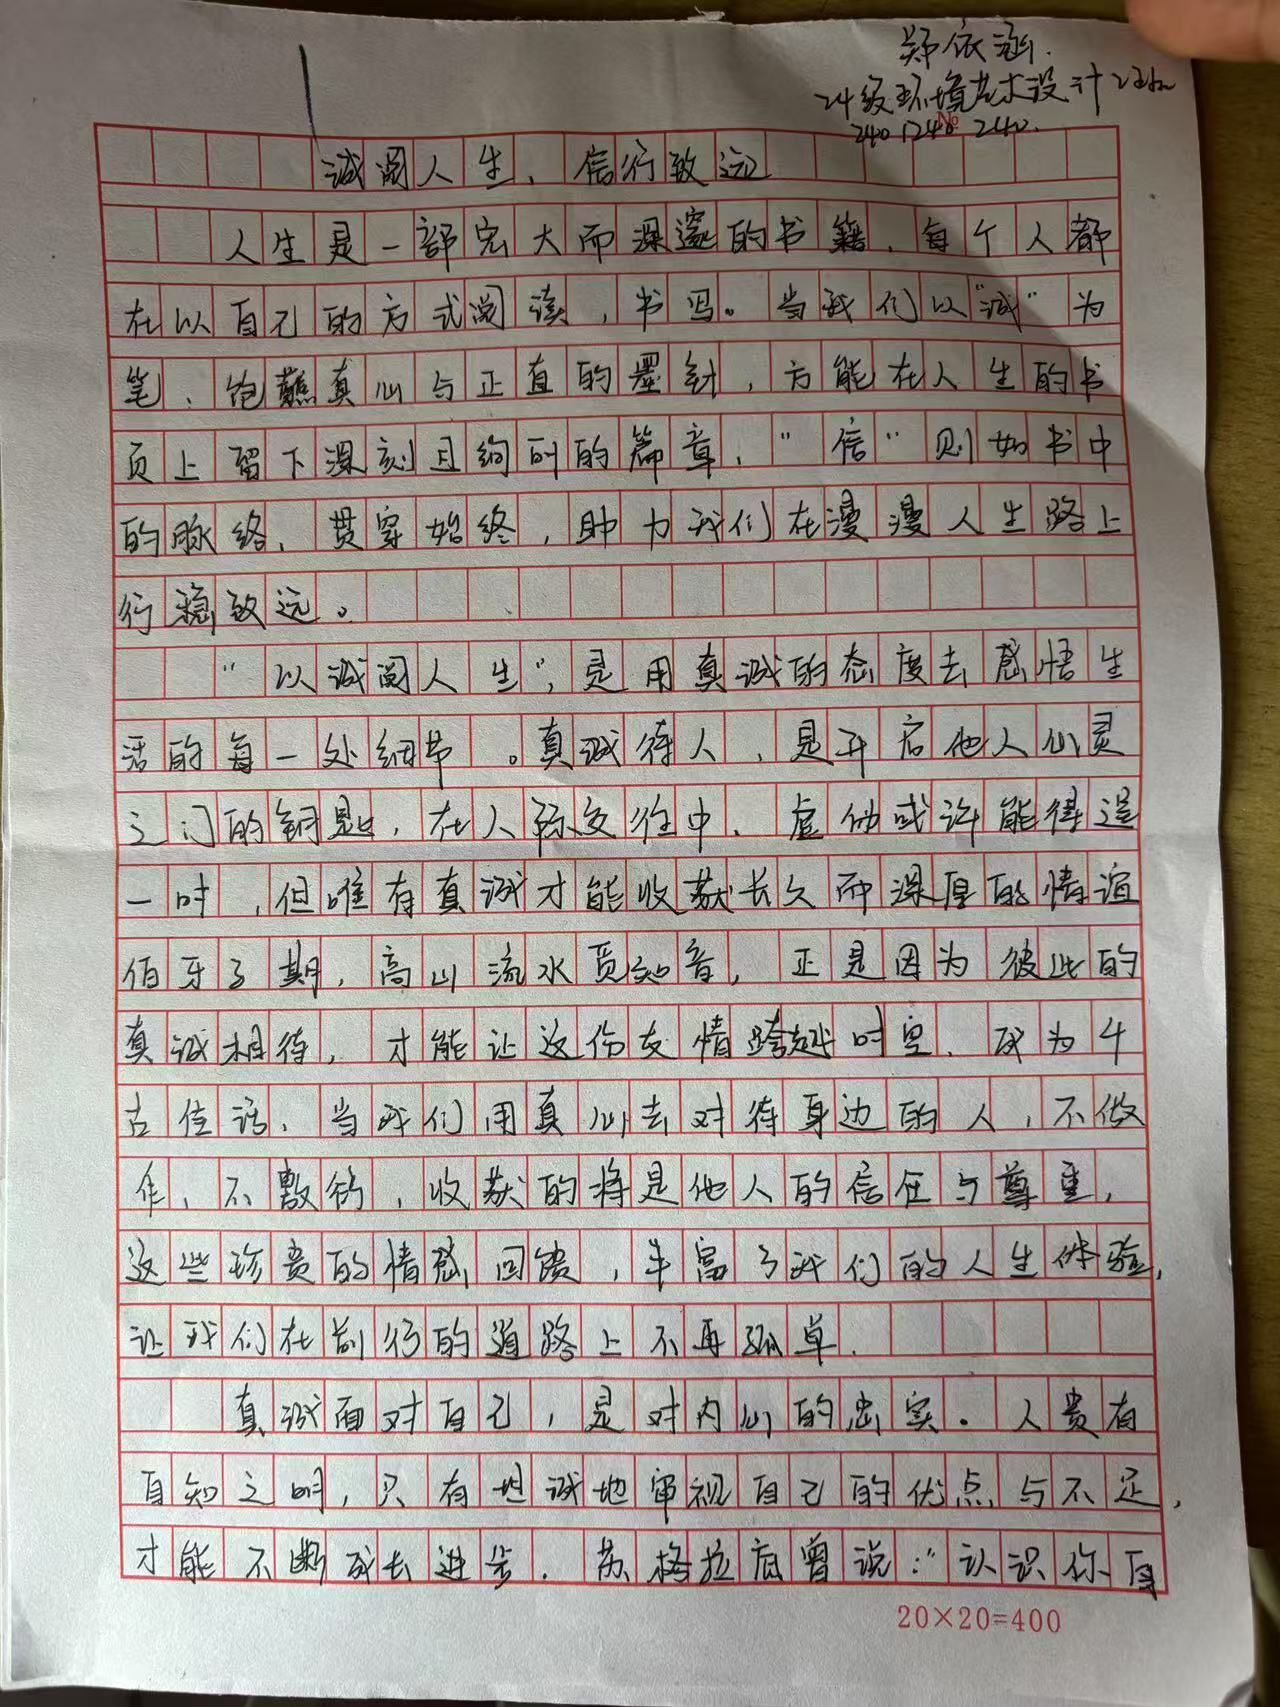 郑依涵.
24级环境艺术设计
2401240240.
№
诚阅人生,信行致远
人生是一部宏大而深邃的书籍,每个人都
在以自己的方式阅读,书写。当我们以“诚”为
笔,饱蘸真心与正直的墨针,方能在人生的书
页上留下深刻且绚丽的篇章,“信”则如书中
的脉络,贯穿始终,助力我们在漫漫人生路上
行稳致远。
“以诚阅人生”,是用真诚的态度去感悟生
活的每一处细节。真诚待人,是开启他人心灵
之门的钥匙,在人际交往中,虚伪或许能得逞
一时,但唯有真诚才能收获长久而深厚的情谊
伯牙子期,高山流水觅知音,正是因为彼此的
真诚相待,才能让这份友情跨越时空,成为千
古佳话,当我们用真心去对待身边的人,不做
作,不敷衍,收获的将是他人的信任与尊重,
这些珍贵的情感回馈,丰富了我们的人生体验,
让我们在前行的道路上不再孤单.
真诚面对自己,是对内心的忠实.人贵有
自知之明,只有坦诚地审视自己的优点与不足,
才能不断成长进步.苏格拉底曾说:“认识你自
20×20=400